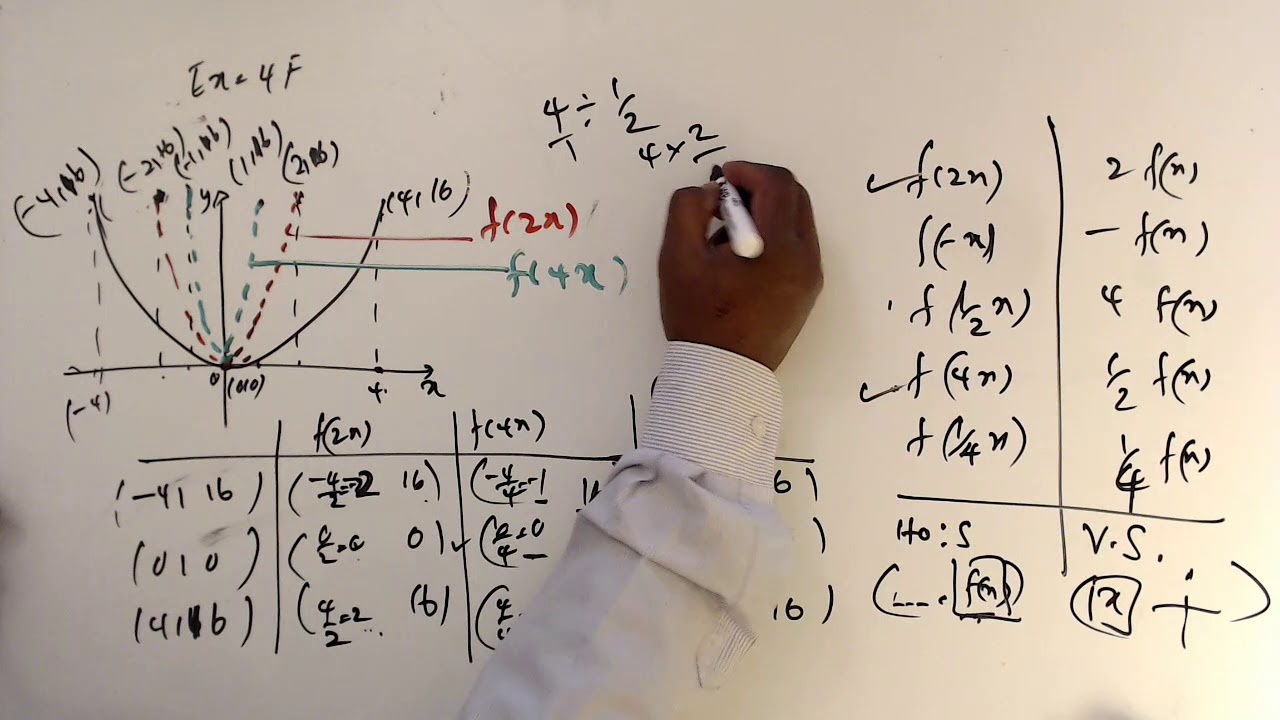 Ex = 4 F
(-4, 16)
(-2, 16)
(-1, 16)
(1, 16)
(2, 16)
y
(4, 16)
f(2x)
f(4x)
0
(0,0)
4
x
(-4)
4/1 ÷ 1/2
4 × 2
f(2x) f(4x)
(-4, 16) (-4/2=-2 16) (-4/4=-1 16)
(0, 0) (0/2=0 0) (0/4=0
(4, 16) (4/2=2 16) (4 16)
✓ f(2x) 2 f(x)
f(-x) - f(x)
f(1/2 x) 4 f(x)
✓ f(4x) 1/2 f(x)
f(1/4 x) 1/4 f(x)
Ho:S V.S.